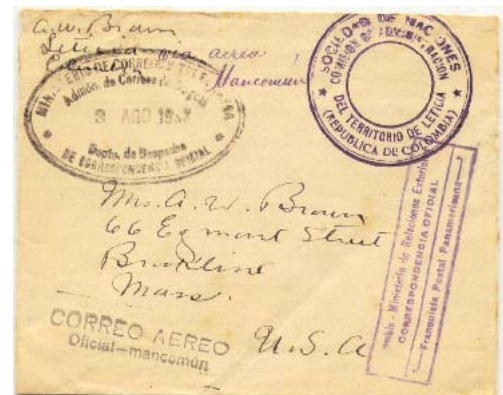 A. W. Brown
Leticia via aerea
Mancomun
MINISTERIO DE CORREOS Y TELEGRAFOS
Admón. de Correos de Bogotá
3 AGO 193
Depto. de Despacho
DE CORRESPONDENCIA OFICIAL
SOCIEDAD DE NACIONES
COMISION DE ADMINISTRACION
DEL TERRITORIO DE LETICIA
(REPUBLICA DE COLOMBIA)
Mrs. A. W. Brown
66 Egmont Street
Brookline
Mass.
U.S.A
CORREO AEREO
Oficial—mancomún
Ministerio de Relaciones Exteriores
CORRESPONDENCIA OFICIAL
Franquicia Postal Panamericana